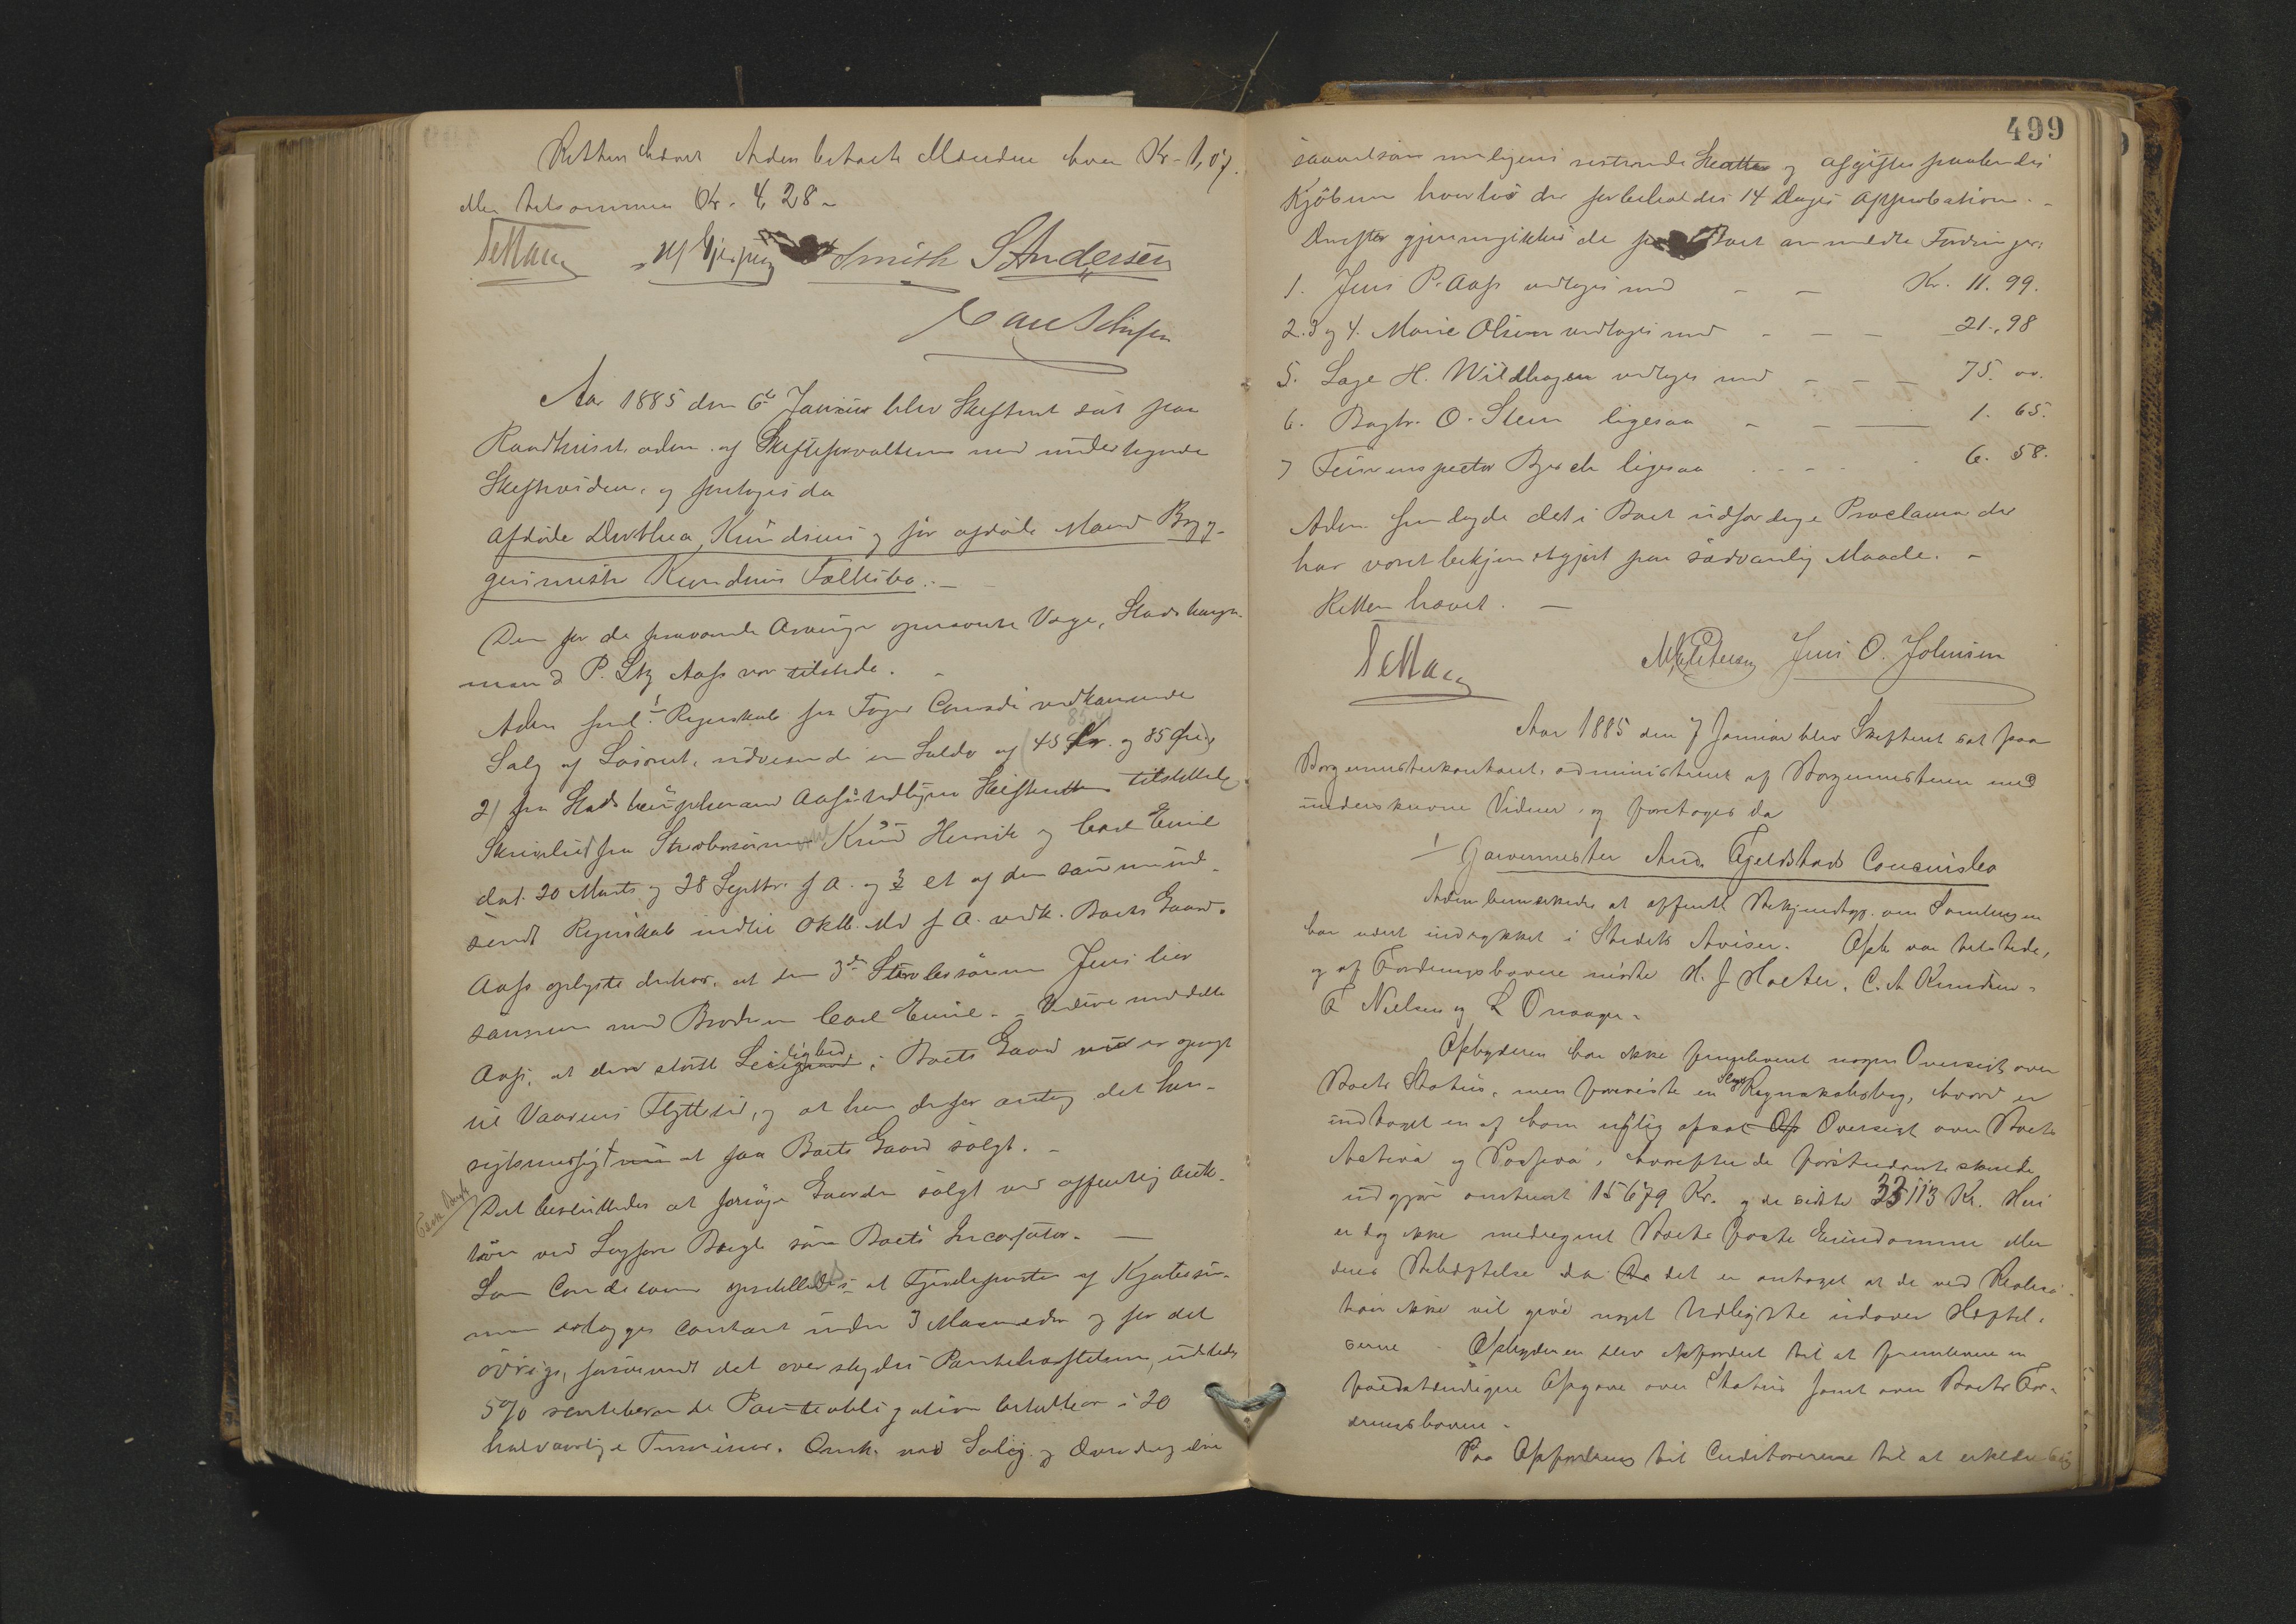 Retten hævet. Aden betalte Mændene hver Kr. 1,07.
eller tilsammen Kr. 4,28 -
Smith SAndersen
Aar 1885 den 6te Januar blev Skifteret sat paa
Raadhuset, adm. af Skifteforvalteren med undertegnede
Skiftevidner, og foretoges da
Afdøde Dorthea Knudsens og før afdøde Mand Byg-
germester Knudsens Fællesbo. -
Den for de fraværende Arvinger opnævnte Værge, Stadshaupt-
mand P. Ltz Aass var tilstede. -
Aden freml. 1 Regnskab fra Foged Conradi vedkommende
Salg af Løsøret, udvisende en Saldo af 45 Kr. og 85 Øre,
2) fra Stadshauptmand Aass indtagne Skifteretten tilstillede
Skrivelser fra Stervbosønnerne Knud Henrik og Carl Emil
dat. 20 Marts og 28 Septbr. f A. og 3 et af den samme ind-
sendt Regnskab indtil Oktb. Md f A. vedk. Boets Gaard.
Aass oplyste derhos, at den 3die Stervbosønnen Jens bor
sammen med Broderen Carl Emil. - Videre meddelte
Aass, at den største Leilighed i Boets Gaard nu er opsagt
til Vaarens Flyttetid, og at han derfor antog det hen-
sigtsmessigt at faa Boets Gaard solgt. -
Det besluttedes at forsøge Gaarden solgt ved offentlig Auk-
tion ved Sagfører Bugge som Boets Incassator. -
Som Conditioner opstilledes at Fjerdeparten af Kjøbesum-
men erlægges contant inden 3 Maaneder og for det
øvrige, forsaavidt det overstiger Pantehæftelserne, udstedes
5% rentebærende Panteobligation betalbar i 20
halvaarlige Terminer. Omk. ved Salg og Overdragelse
499
saavelsom muligens resterende Skatter og Afgifter paahviler
Kjøberen hvorhos der forbeholdes 14 Dages Approbation. -
Derefter gjennemgikkes de i Boet anmeldte Fordringer:
1. Jens P. Aass vedtoges med - - Kr. 11. 99.
2. 3 og 4. Marie Olsen vedtoges med - - - 21., 98
5. Læge H. Wildhagen vedtoges med - - - 75. oo.
6. Bogtr. O. Steen ligesaa - - 1. 65.
7 Feierinspector Bjerch ligesaa - - - 6. 58.
Aden fremlagde det i Boet udfærdige Proclama der
har været bekjendtgjort paa sædvanlig Maade. -
Retten hævet. -
Jens O. Johnsen
Aar 1885 den 7 Januar blev Skifteret sat paa
Borgermesterkontoret, administreret af Borgermesteren med
underskrevne Vidner, og foretoges da
1 Garvermester And. Gjeldstads Concursbo
Aden bemærkede at offentl Bekjendtgj. om Samlingen
har været indrykket i Stedets Aviser. Opb var tilstede,
og af Fordringshavere mødte H. J Holter, C. A Knudsen,
F Nielsen og L Onsager.
Opbyderen har ikke fremlevert nogen Oversigt over
Boets Status, men foreviste en Slags Regnskabsbog, hvori er
indtaget en af ham nylig opsat Oversigt over Boets
Activa og Passiva, hvorefter de førstnævnte skulde
udgjøre omtrent 15679 Kr. og de sidste 33113 Kr. Heri
er dog ikke medregnet Boets faste Eiendomme eller
deres Behæftelse da det er antaget at de ved Realisa-
tion ikke vil give noget Udbytte udover Heftel-
serne. Opbyderen blev opfordret til at fremlevere en
fuldstændigere Opgave over Status samt over Boets For-
dringshavere.
Paa Opfordring til Creditorerne til at erklære sig